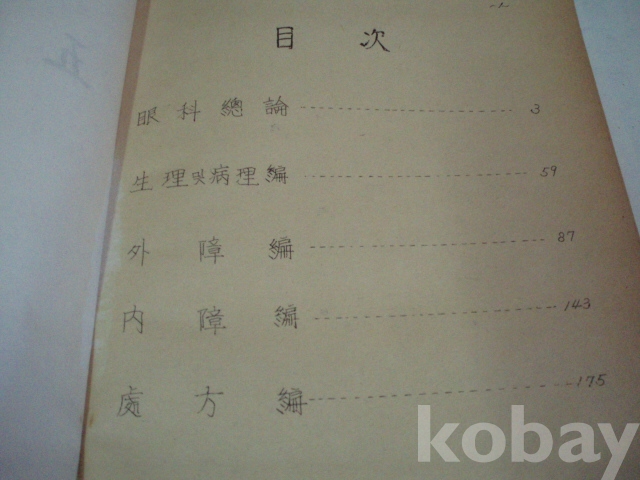 目 次
眼科總論 3
生理및病理編 59
外障編 87
内障編 143
處方編 175
kobay